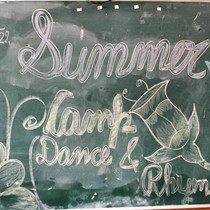 Summer
Camp
Dance &
Rhym